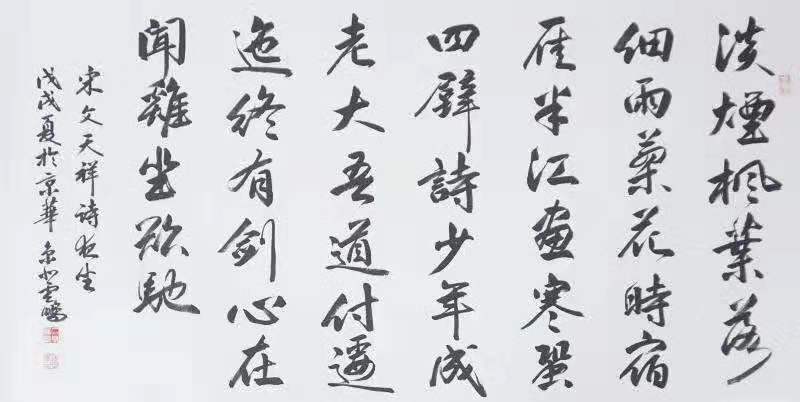 淡煙楓葉落
細雨蓼花時宿
雁半江畫寒蛩
四壁詩少年成
老大吾道付逶
迤終有劍心在
聞雞坐欲馳
宋文天祥詩夜坐
戊戌夏於京華 雲鵬